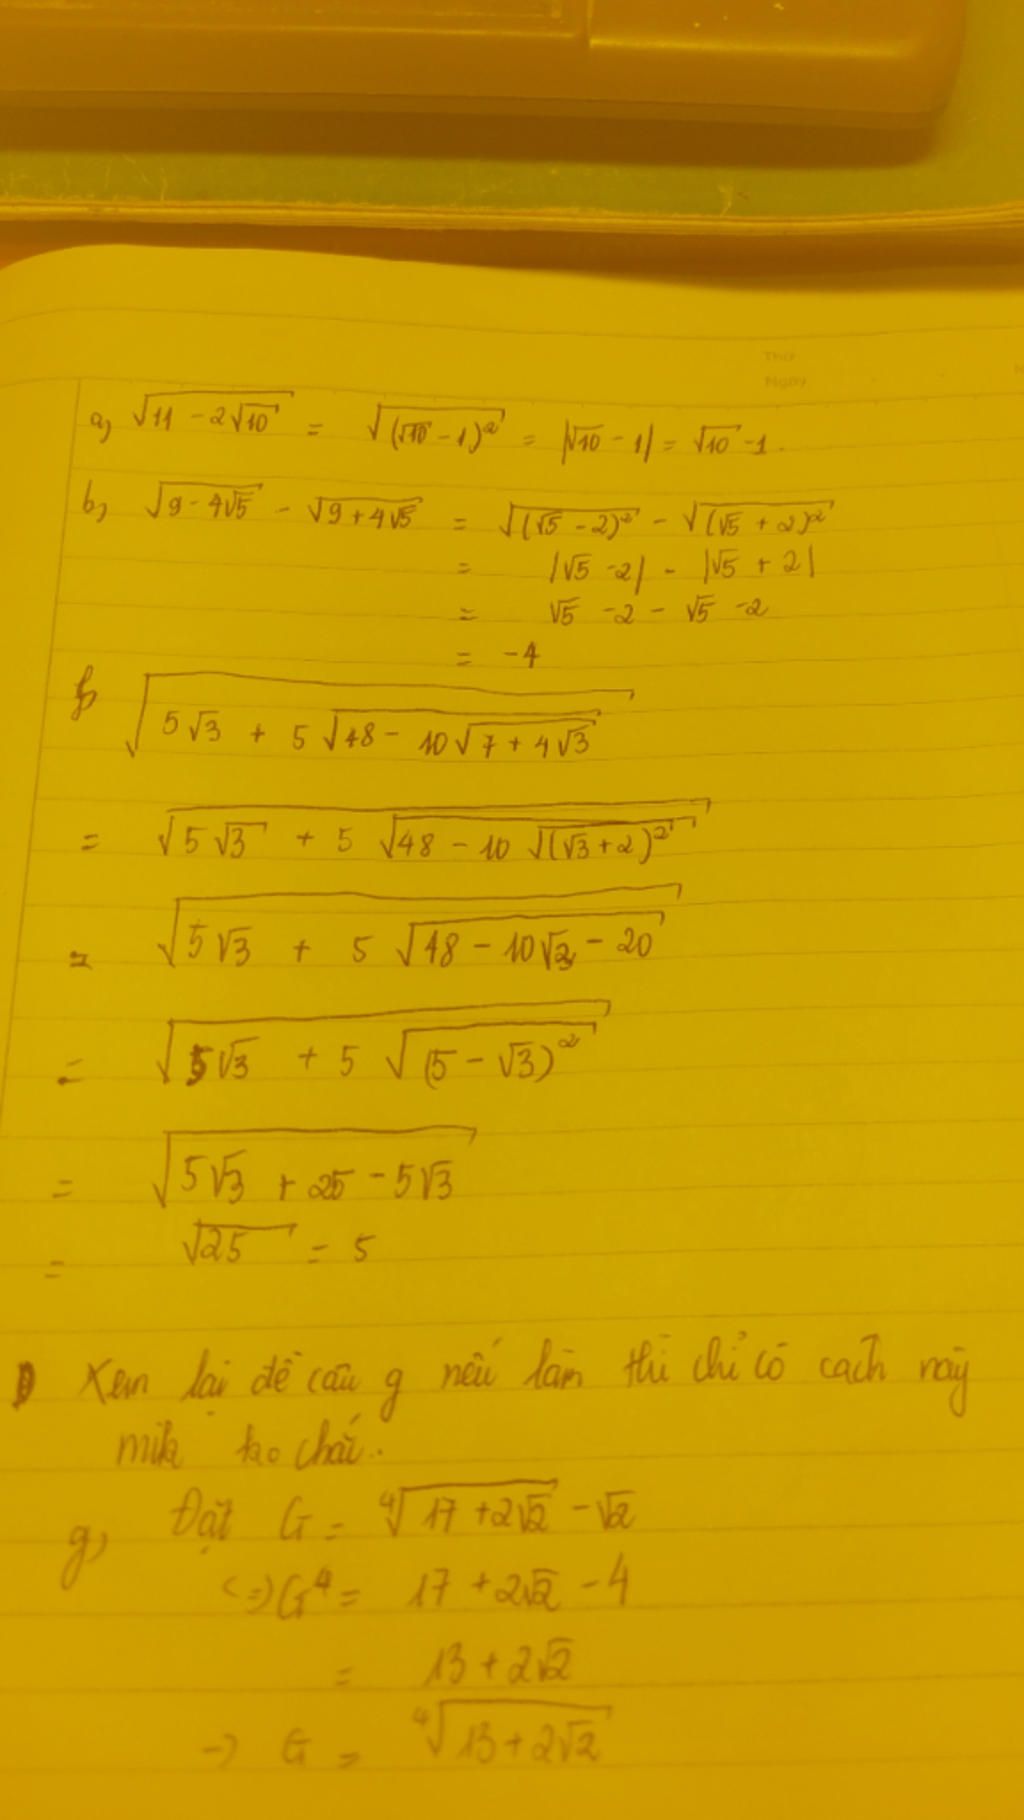 Thứ
Ngày
a) √(11 - 2√10) = √((√10 - 1)²) = |√10 - 1| = √10 - 1.
b) √(9 - 4√5) - √(9 + 4√5) = √((√5 - 2)²) - √((√5 + 2)²)
= |√5 - 2| - |√5 + 2|
= √5 - 2 - √5 - 2
= -4
f) √(5√3 + 5√(48 - 10√(7 + 4√3)))
= √(5√3 + 5√(48 - 10√((√3 + 2)²)))
= √(5√3 + 5√(48 - 10√3 - 20))
= √(5√3 + 5√((5 - √3)²))
= √(5√3 + 25 - 5√3)
= √25 = 5
Xem lại đề câu g nếu làm thì chỉ có cách này
mik
g) Đặt G = ⁴√(17 + 2√2) - √2
<=> G⁴ = 17 + 2√2 - 4
= 13 + 2√2
-> G = ⁴√(13 + 2√2)